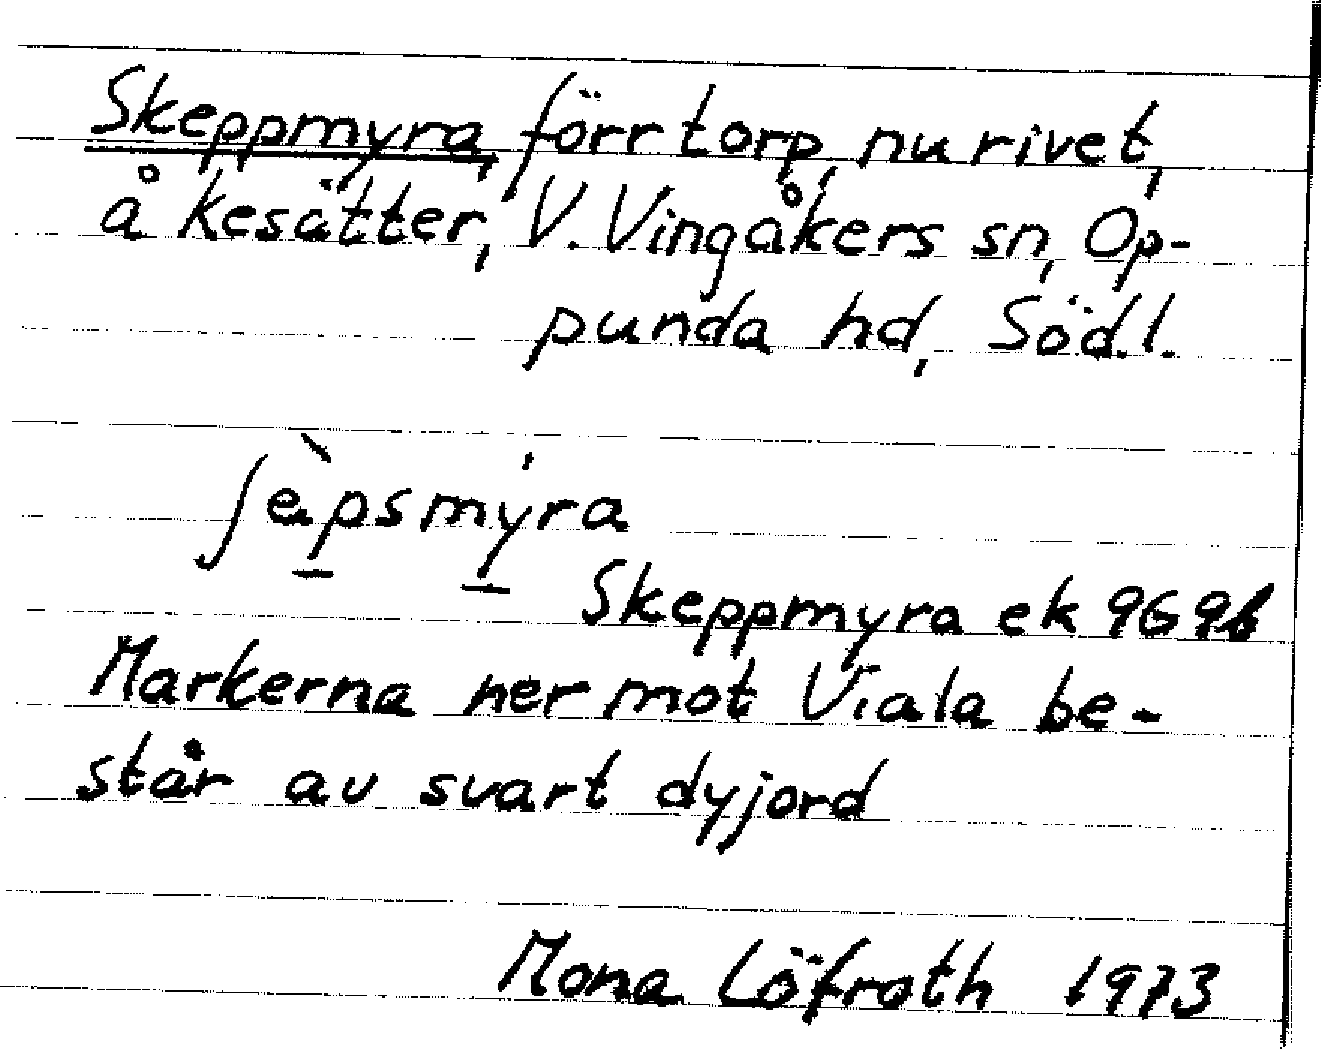 Skeppmyra, förr torp, nu rivet,
å Kesätter, V. Vingåkers sn, Op-
punda hd, Söd.l.
ʃèpsmýra
Skeppmyra ek 9G9b
Markerna ner mot Viala be-
står av svart dyjord
Mona Löfroth 1973